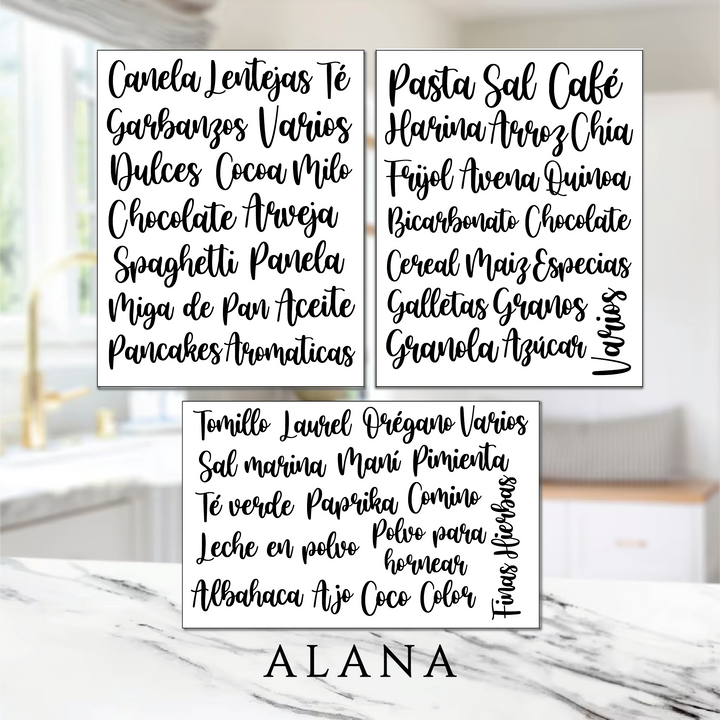 Canela Lentejas Té
Garbanzos Varios
Dulces Cocoa Milo
Chocolate Arveja
Spaghetti Panela
Miga de Pan Aceite
Pancakes Aromaticas
Pasta Sal Café
Harina Arroz Chía
Frijol Avena Quinoa
Bicarbonato Chocolate
Cereal Maiz Especias
Galletas Granos
Granola Azúcar
Varios
Tomillo Laurel Orégano Varios
Sal marina Maní Pimienta
Té verde Paprika Comino
Leche en polvo Polvo para
hornear
Albahaca Ajo Coco Color
Finas Hierbas
ALANA